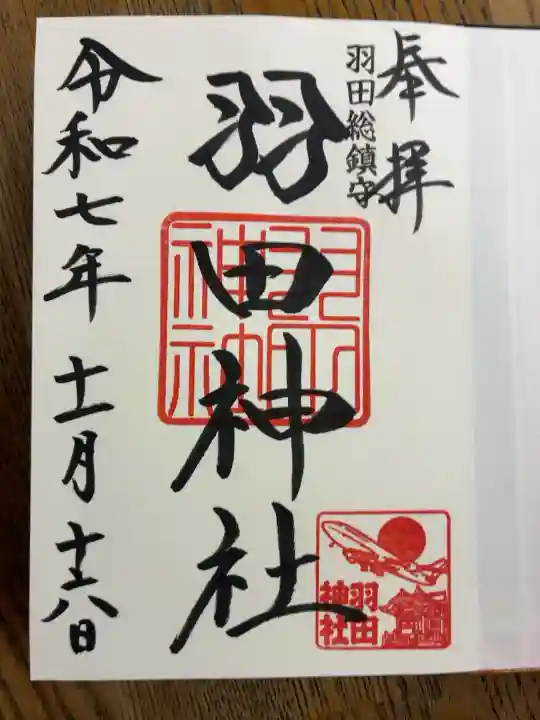 奉拝
羽田総鎮守
羽田神社
羽田
神社
羽田
神社
令和七年十一月十六日